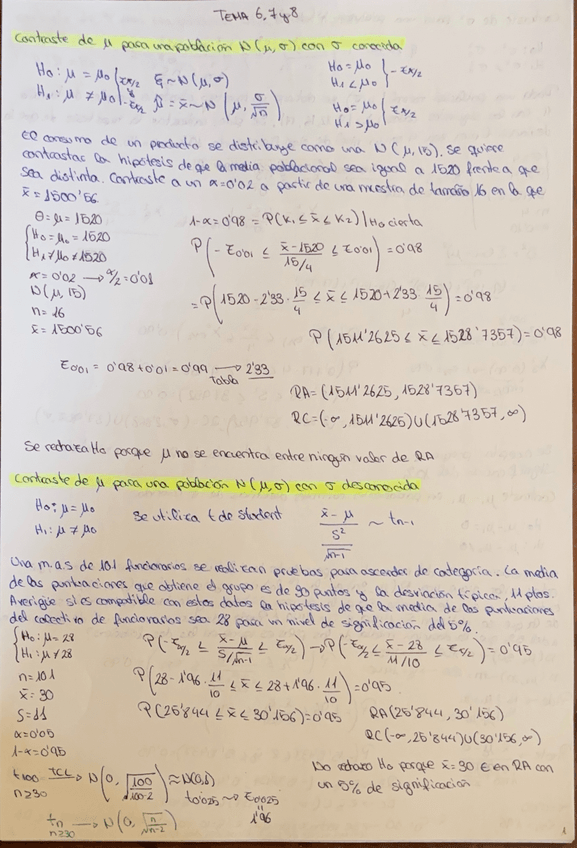 TEMA 6, 7 y 8
Contraste de μ para una población N(μ, σ) con σ conocida
H0: μ = μ0 | zα/2 ξ ~ N(μ, σ) H0 = μ0 | - zα/2
H1: μ ≠ μ0 | - zα/2 μ̂ = x̄ ~ N(μ, σ/√n) H1 < μ0
H0 = μ0 | zα/2
H1 > μ0
El consumo de un producto se distribuye como una N(μ, 15). Se quiere
contrastas la hipótesis de que la media poblacional sea igual a 1520 frente a que
sea distinta. Contraste a un α=0'02 a partir de una muestra de tamaño 16 en la que
x̄ = 1500'56.
θ = μ = 1520
{ H0 = μ0 = 1520
H1 ≠ μ0 ≠ 1520
α = 0'02 → α/2 = 0'01
N(μ, 15)
n = 16
x̄ = 1500'56
1-α = 0'98 = P(K1 ≤ x̄ ≤ K2) | H0 cierta
P(- z0'01 ≤ (x̄ - 1520)/(15/4) ≤ z0'01) = 0'98
= P(1520 - 2'33 · 15/4 ≤ x̄ ≤ 1520 + 2'33 · 15/4) = 0'98
P(1511'2625 ≤ x̄ ≤ 1528'7357) = 0'98
z0'01 = 0'98 + 0'01 = 0'99 → tabla 2'33
RA = (1511'2625, 1528'7357)
RC = (-∞, 1511'2625) U (1528'7357, ∞)
Se rechaza H0 porque μ no se encuentra entre ningún valor de RA
Contraste de μ para una población N(μ, σ) con σ desconocida
H0: μ = μ0
H1: μ ≠ μ0
Se utiliza t de student
(x̄ - μ)/(S²/√n-1) ~ tn-1
Una m.a.s de 101 funcionarios se realizan pruebas para ascender de categoría. La media
de las puntuaciones que obtiene el grupo es de 30 puntos y la desviación típica, 11 ptos.
Averigüe si es compatible con estos datos la hipótesis de que la media de las puntuaciones
del colectivo de funcionarios sea 28 para un nivel de significación del 5%.
{ H0: μ = 28
H1: μ ≠ 28
n = 101
x̄ = 30
S = 11
α = 0'05
1-α = 0'95
P(- tα/2 ≤ (x̄ - μ)/(S/√n-1) ≤ tα/2) → P(- tα/2 ≤ (x̄ - 28)/(11/10) ≤ tα/2) = 0'95
P(28 - 1'96 · 11/10 ≤ x̄ ≤ 28 + 1'96 · 11/10) = 0'95
P(25'844 ≤ x̄ ≤ 30'156) = 0'95
RA (25'844, 30'156)
RC (-∞, 25'844) U (30'156, ∞)
t100 TCL → N(0, √100/100-2) ≈ N(0,1)
n ≥ 30
t0'025 ~ z0'025
1'96
No rechazo H0 porque x̄ = 30 ∈ en RA con
un 5% de significación
tn → N(0, √n/√n-2)
n ≥ 30
1